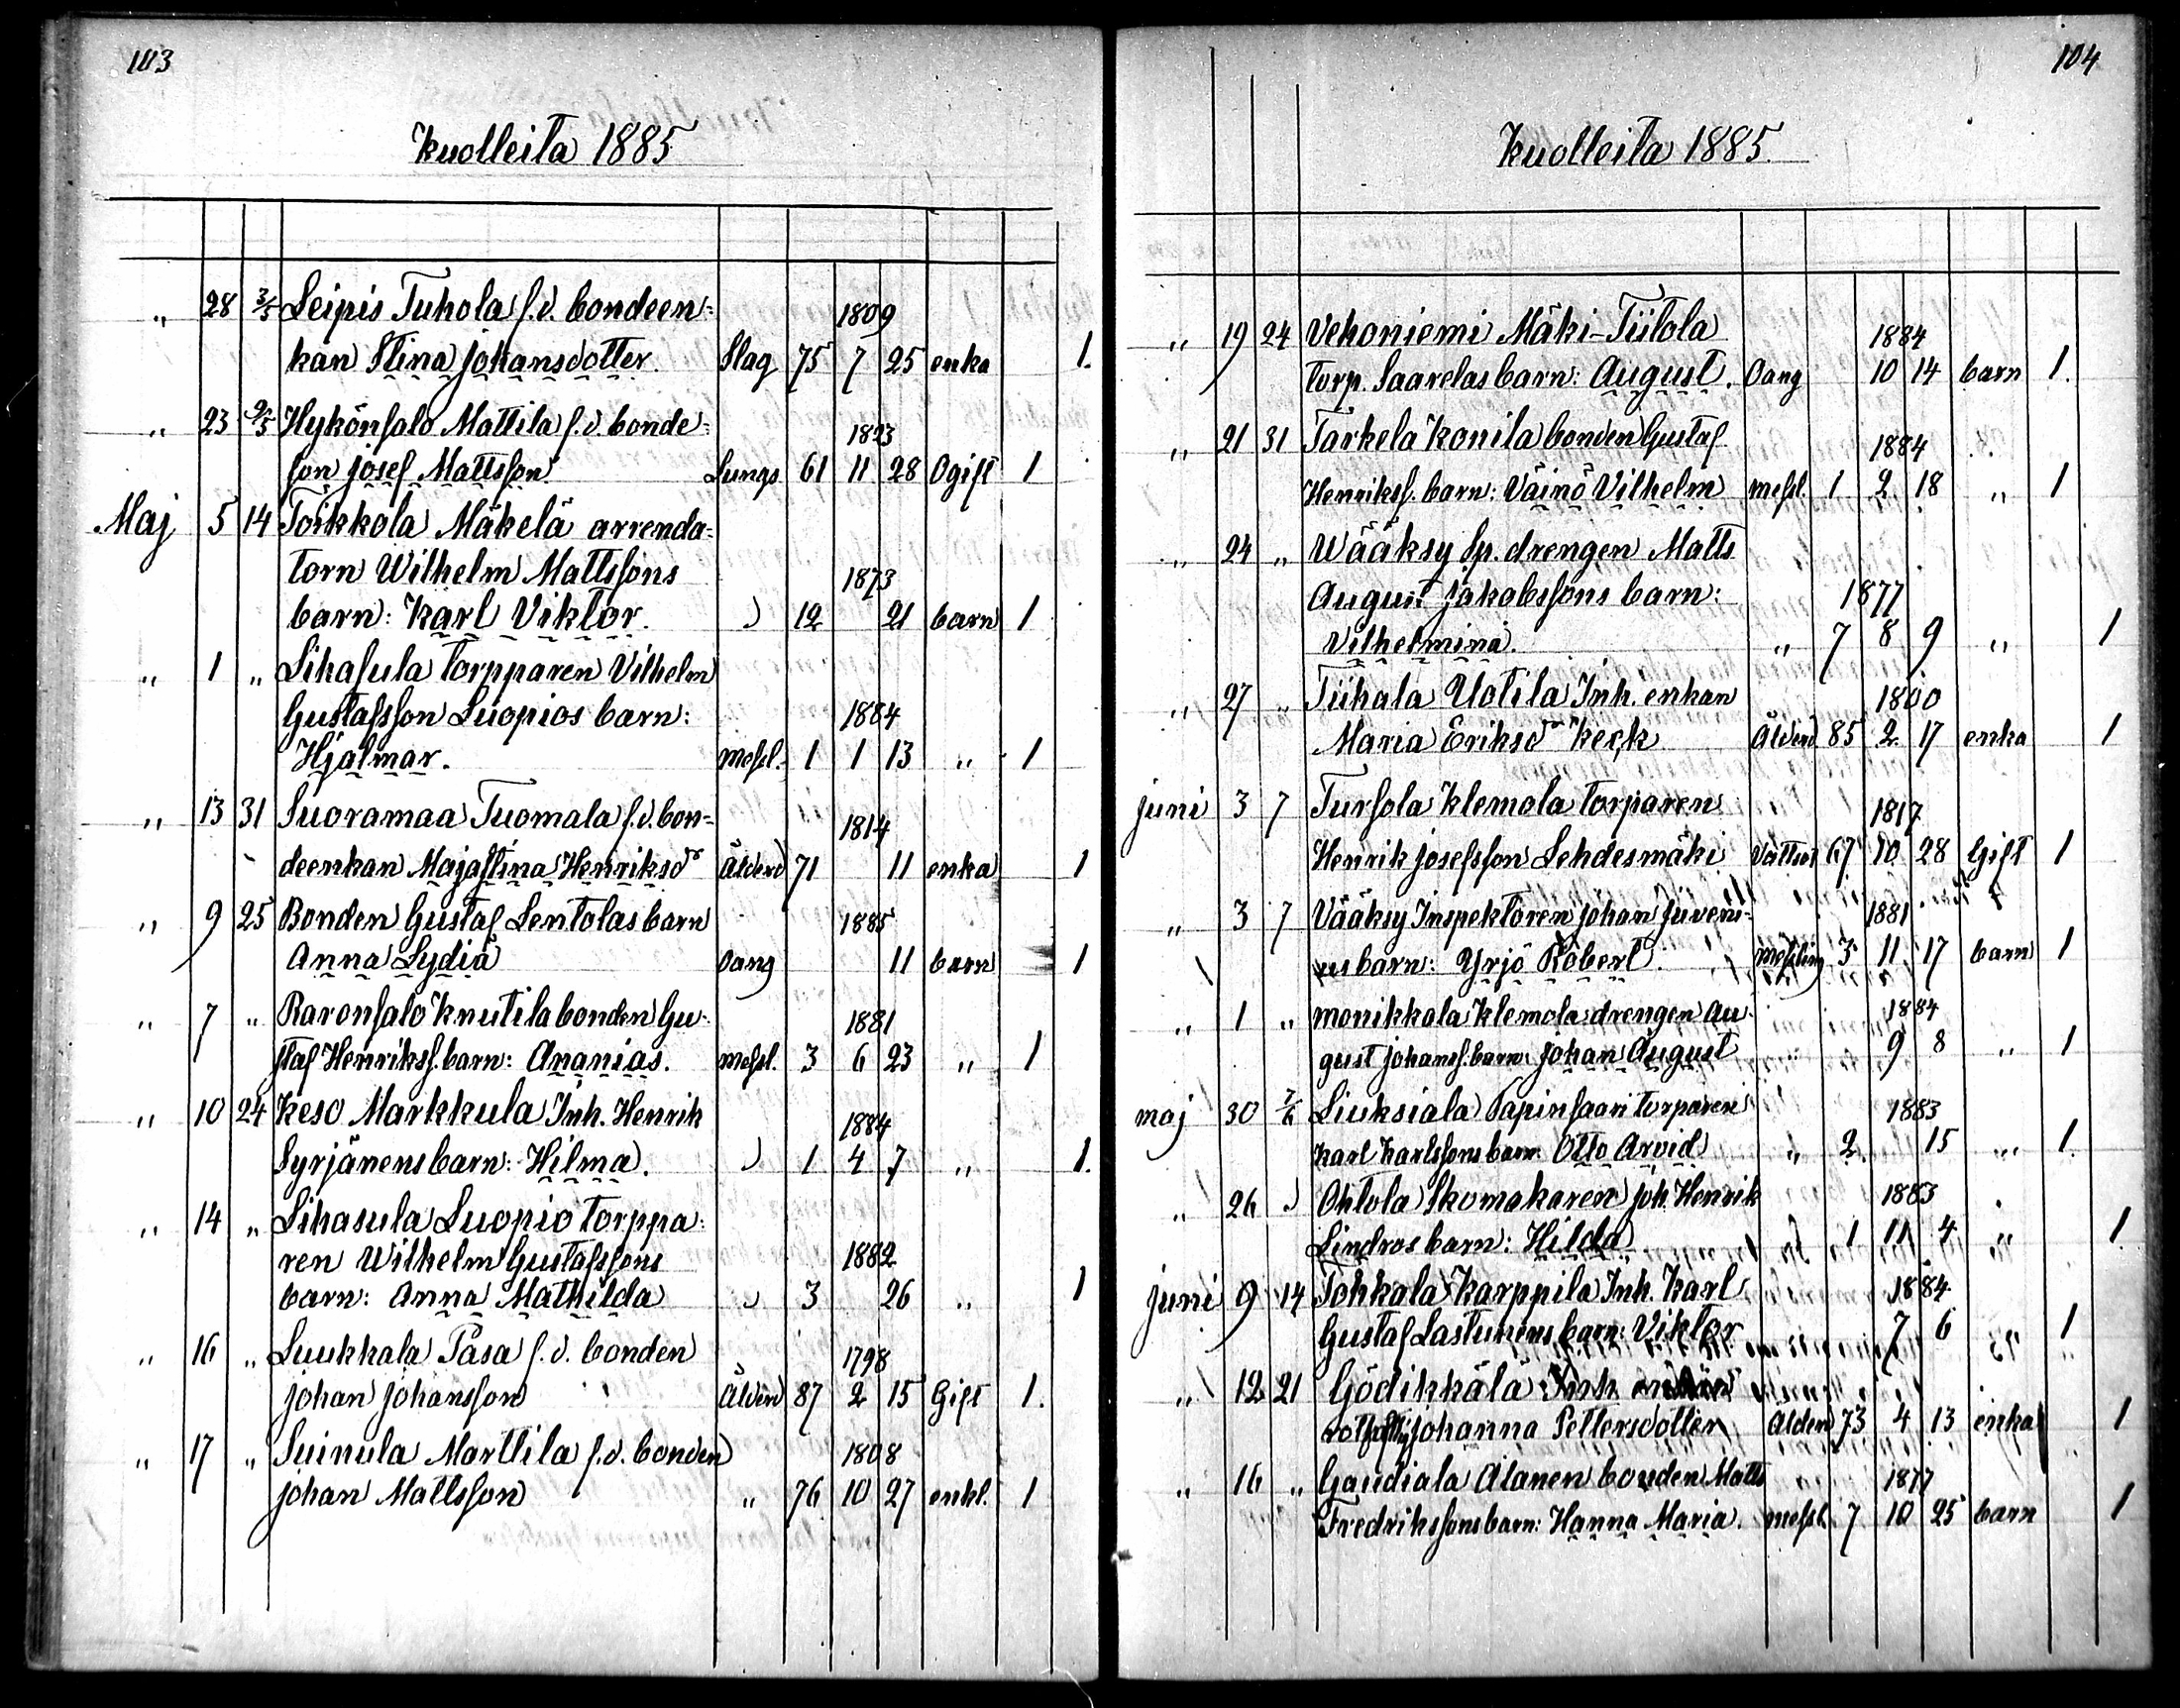 103
Kuolleita 1885
„ 28 3/5 Leipis Tuhola f.d. bondeen= 1809
kan Stina Johansdotter. Slag 75 7 25 enka 1.
„ 23 9/5 Hykönsalo Mattila f.d. bonde= 1823
son Josef Mattsson Lungs 61 11 28 Ogift 1
Maj 5 14 Toikkola Mäkelä arrenda=
torn Wilhelm Mattssons 1873
barn: Karl Viktor. „ 12 21 barn 1
„ 1 „ Lihasula torpparen Vilhelm
Gustafsson Luopios barn: 1884
Hjalmar. messl. 1 1 13 „ 1
„ 13 31 Suoramaa Tuomala f.d. bon= 1814
deenkan Majastina Henriksdr Ålderd 71 11 enka 1
„ 9 25 Bonden Gustaf Lentolas barn 1885
Anna Lydia Oang 11 barn 1
„ 7 „ Raronsalo Knutila bonden Gu= 1881
staf Henrikss. barn: Ananias. messl. 3 6 23 „ 1
„ 10 24 Keso Markkula Inh. Henrik 1884
Syrjänens barn: Hilma. „ 1 4 7 „ 1.
„ 14 „ Lihasula Luopio torppa=
ren Wilhelm Gustafssons 1882
barn: Anna Mathilda „ 3 26 „ 1
„ 16 „ Luukkala Pasa f.d. bonden 1798
Johan Johansson Ålderd 87 2 15 Gift 1.
„ 17 „ Suinula Marttila f.d. bonden 1808
Johan Mattsson „ 76 10 27 enkl. 1
104
Kuolleita 1885.
„ 19 24 Vehoniemi Mäki-Tiitola 1884
torp. Saarelas barn: August. Oang 10 14 barn 1.
„ 21 31 Tarkela Konila bonden Gustaf 1884
Henrikss. barn: Väinö Vilhelm messl. 1 2 18 „ 1
„ 24 „ Wääksy Sp. drengen Matts
August Jakobssons barn: 1877
Vilhelmina. „ 7 8 9 „ 1
„ 27 „ Tiihala Uotila Inh. enkan 1800
Maria Eriksdr Keck Ålderd 85 2 17 enka 1
Juni 3 7 Tursola Klemola torparen 1817
Henrik Josefsson Lehdesmäki Vattsot 67 10 28 Gift 1
„ 3 7 Vääksy Inspektoren Johan Juveni= 1881
us barn: Yrjö Robert. messling 3 11 17 barn 1
„ 1 „ Monikkala Klemola drengen Au= 1884
gust Johanss. barn: Johan August „ 9 8 „ 1
Maj 30 7/6 Liuksiala Papinsaari torparen 1883
Karl Karlssons barn: Otto Arvid „ 2 15 „ 1.
„ 26 „ Ohtola Skomakaren Joh. Henrik 1883
Lindros barn: Hilda 1 11 4 „ 1.
Juni 9 14 Tohkala Karppila Inh. Karl 1884
Gustaf Lastunens barn: Viktor 7 6 1
„ 12 21 Gödikkälä Inh.
Johanna Pettersdotter Ålderd 73 4 13 enka 1
„ 16 „ Gaudiala Alanen bonden Matts 1877
Fredrikssons barn: Hanna Maria. messl. 7 10 25 barn 1